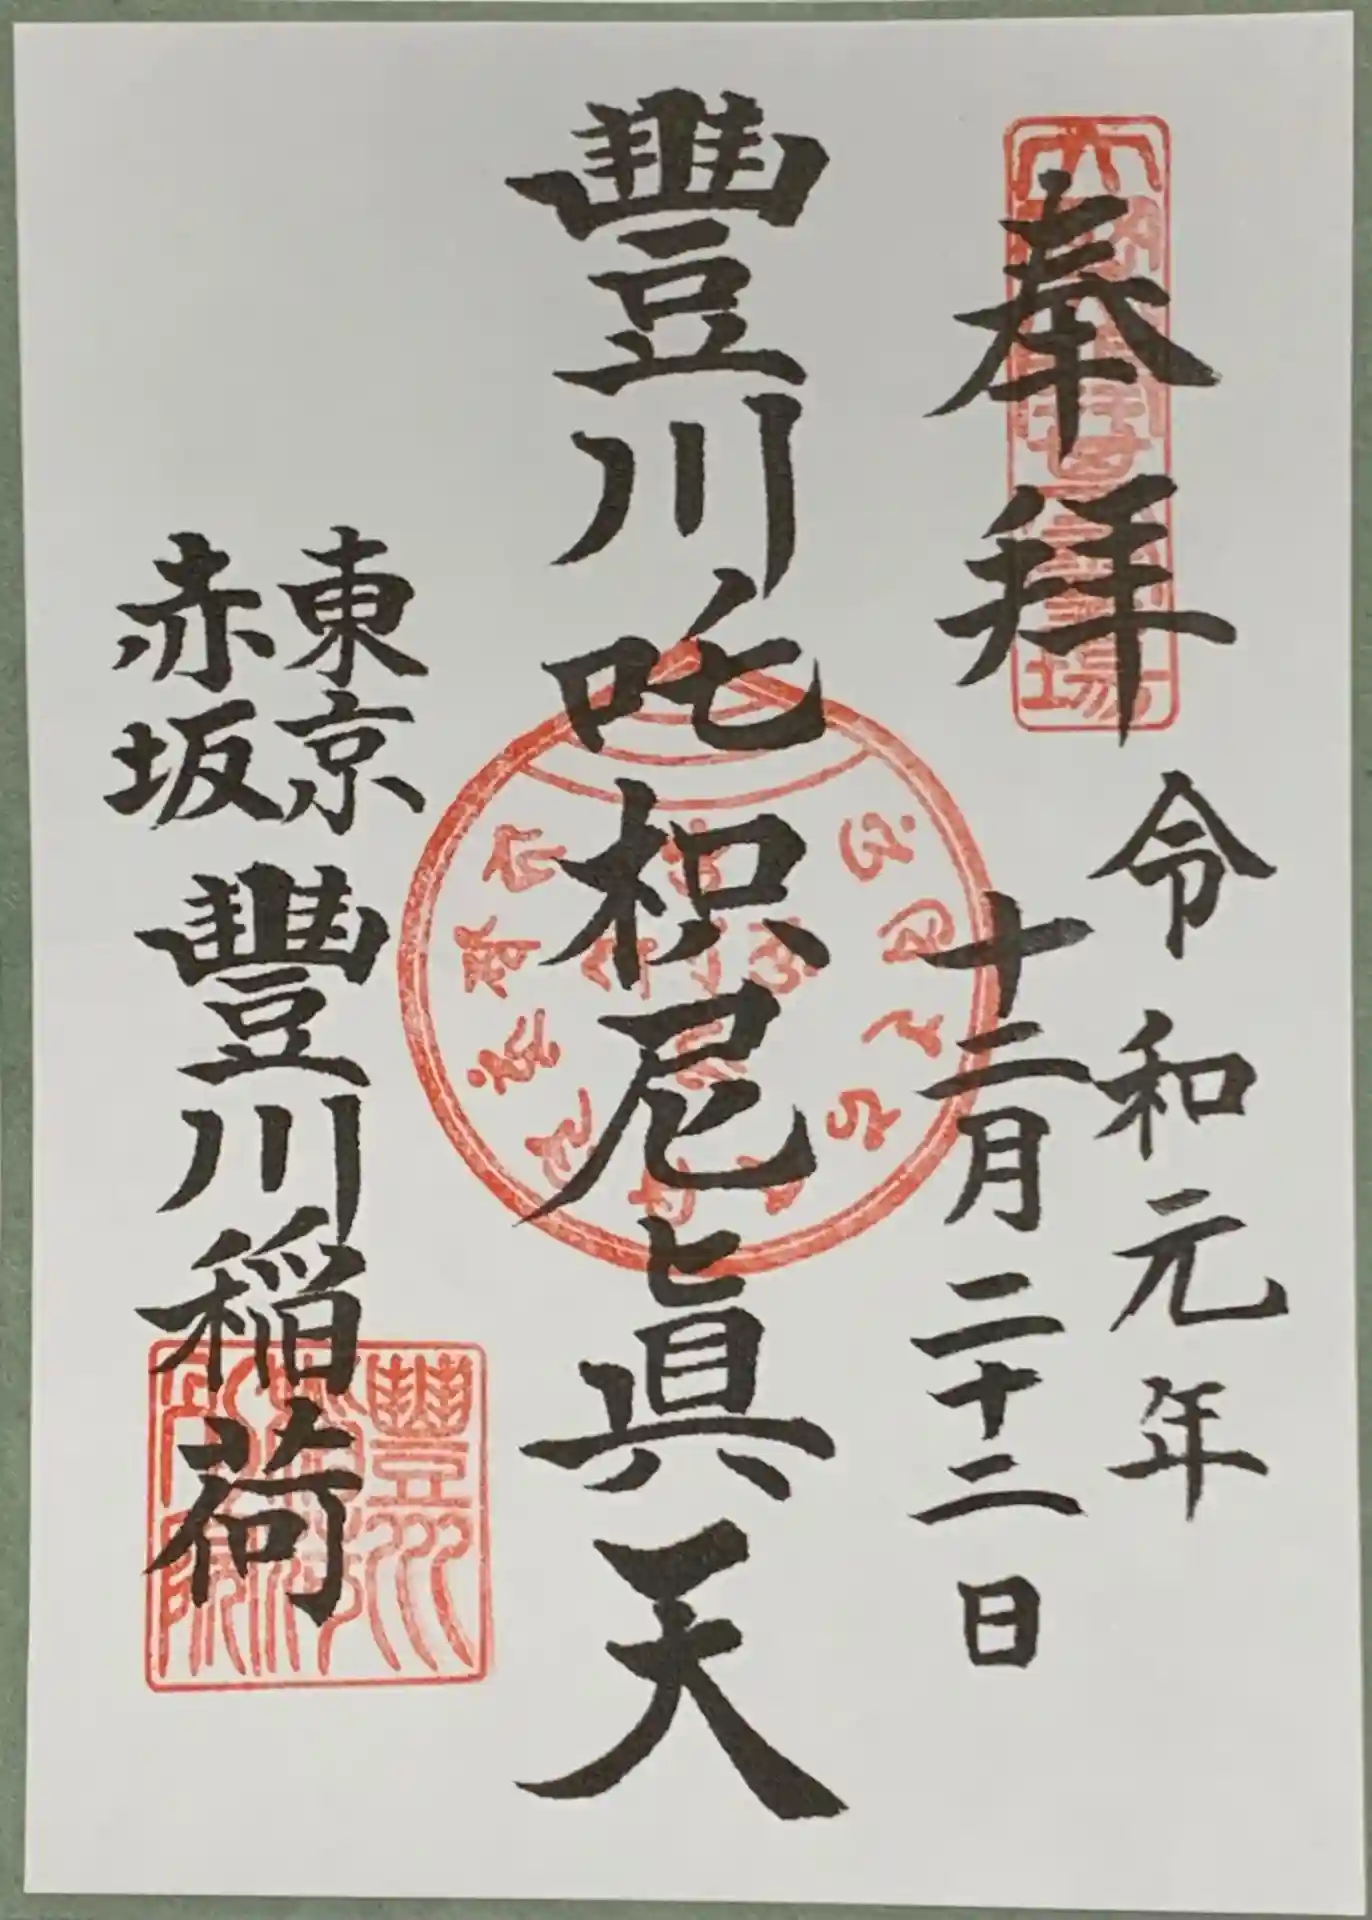 奉拝
令和元年
十二月二十二日
豐川吒枳尼眞天
東京
赤坂
豐川稲荷